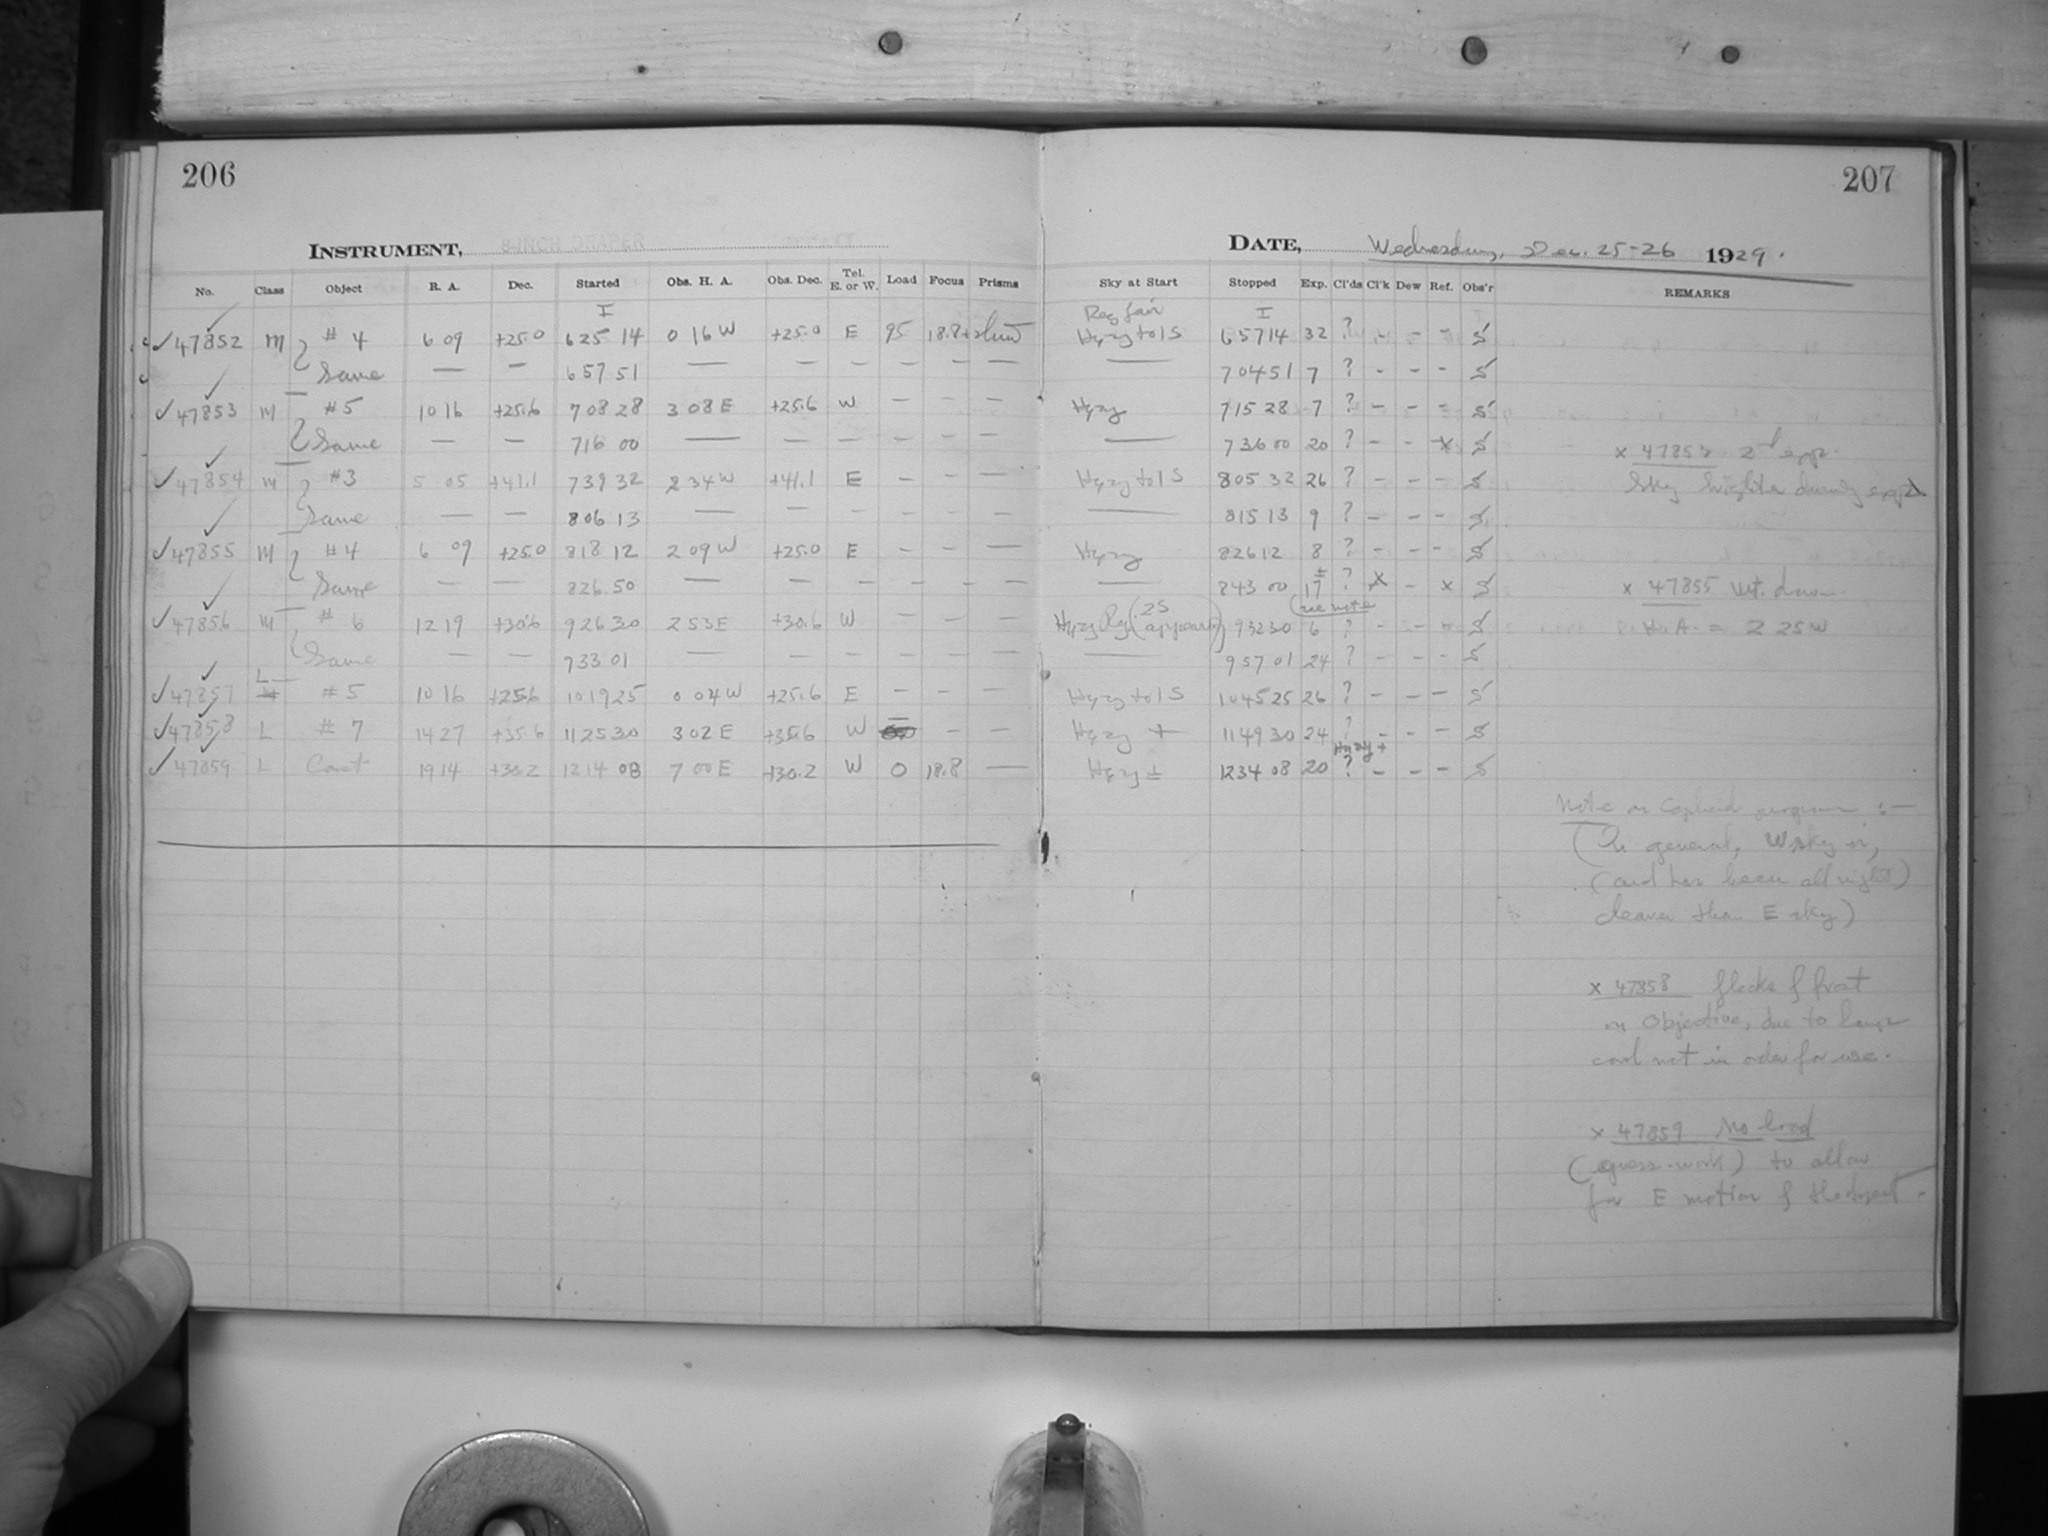 206
207
INSTRUMENT, 8-INCH DRAPER
DATE, Wednesday, Dec. 25-26 1929.
No. Class Object R. A. Dec. Started Obs. H. A. Obs. Dec. Tel. E. or W. Load Focus Prisms Sky at Start Stopped Exp. Cl'ds Cl'k Dew Ref. Obs'r REMARKS
I Reg fair I
✓47852 M # 4 6 09 +25.0 625 14 0 16 W +25.0 E 95 18.8 Hazy to 1 S 65714 32 ? - - - S
Same — — 657 51 — — — — — — — 70451 7 ? - - - S
✓47853 M #5 10 16 +25.6 708 28 3 08 E +25.6 W — — — Hazy 715 28 7 ? - - - S
Same — — 716 00 — — — — — — — 736 00 20 ? - - x S
x 47853 2nd exp.
✓47854 M #3 5 05 +41.1 739 32 2 34 W +41.1 E - - — Hazy to 1 S 805 32 26 ? - - - S
Sky brighter during exp.
Same — — 806 13 — — — — — — — 815 13 9 ? - - - S
✓47855 M #4 6 09 +25.0 818 12 2 09 W +25.0 E - - — Hazy 826 12 8 ? - - - S
Same — — 826.50 — — — — — — — 843 00 17± ? x - x S
x 47855 wt. down.
(see note
✓47856 M # 6 12 19 +30.6 926 30 2 53 E +30.6 W — — — Hazy Reg (2S appears) 932 30 6 ? - - - S
H. A. = 2 25 W
Same — — 933 01 — — — — — — — 957 01 24 ? - - - S
L
✓47857 #5 10 16 +25.6 1019 25 0 04 W +25.6 E - - — Hazy to 1 S 1045 25 26 ? - - - S
✓47858 L # 7 14 27 +35.6 1125 30 3 02 E +35.6 W — - — Hazy + 1149 30 24 ? - - - S
Hazy +
✓47859 L Cart 19 14 +30.2 1214 08 7 00 E +30.2 W 0 18.8 — Hazy ± 1234 08 20 ? - - - S
Note on Cepheid program :—
(In general, W sky is,
(and has been all night)
clearer than E sky)
x 47858 flecks of frost
on Objective, due to lamp
cord not in order for use.
x 47859 No load
(guess-work) to allow
for E motion of the object.